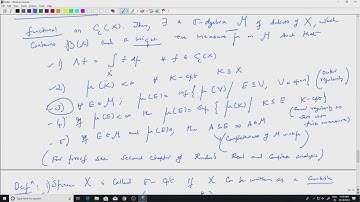 functional on C_c(X). Then, ∃ a σ-algebra M of subsets of X, which
contains B(X) and a unique +ve measure μ on M such that
1) Λf = ∫_X f dμ ∀ f ∈ C_c(X)
2) μ(K) < ∞ ∀ K-cpt K ⊆ X
3) ∀ E ∈ M, μ(E) = inf { μ(V) / E ⊆ V, V-open } (outer regularity)
4) If μ(E) < ∞ then μ(E) = sup { μ(K) / K ⊆ E K-cpt }
5) If E ∈ M and μ(E) = 0, then A ⊆ E ⇒ A ∈ M
(Completeness of M w.r.t. μ)
(For proof see Second chapter of Rudin's Real and Complex analysis)
Defn: 1) Space X is called σ-cpt if X can be written as a Countable